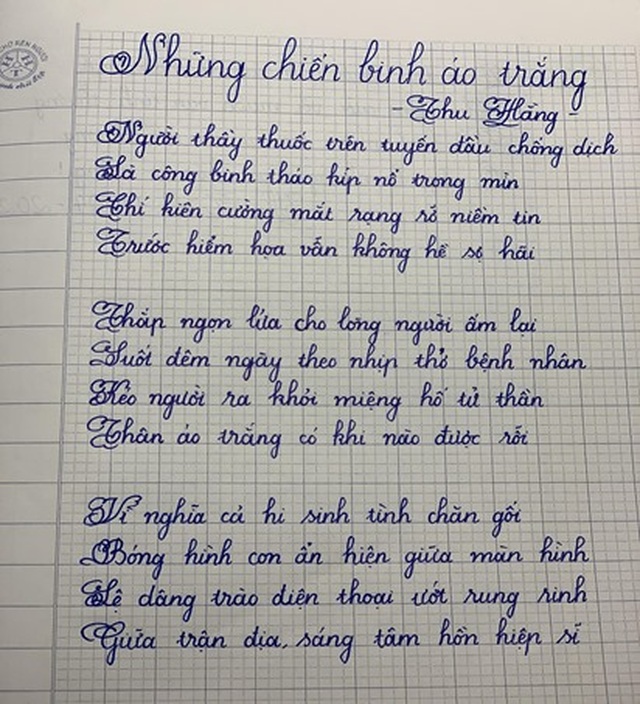 Những chiến binh áo trắng
- Thu Hằng -
Người thầy thuốc trên tuyến đầu chống dịch
Là công binh tháo kíp nổ trong mìn
Chí kiên cường mắt rạng rỡ niềm tin
Trước hiểm họa vẫn không hề sợ hãi
Thắp ngọn lửa cho lòng người ấm lại
Suốt đêm ngày theo nhịp thở bệnh nhân
Kéo người ra khỏi miệng hố tử thần
Thân áo trắng có khi nào được rỗi
Vì nghĩa cả hi sinh tình chăn gối
Bóng hình con ẩn hiện giữa màn hình
Lệ dâng trào điện thoại ướt rung rinh
Giữa trận địa, sáng tâm hồn hiệp sĩ